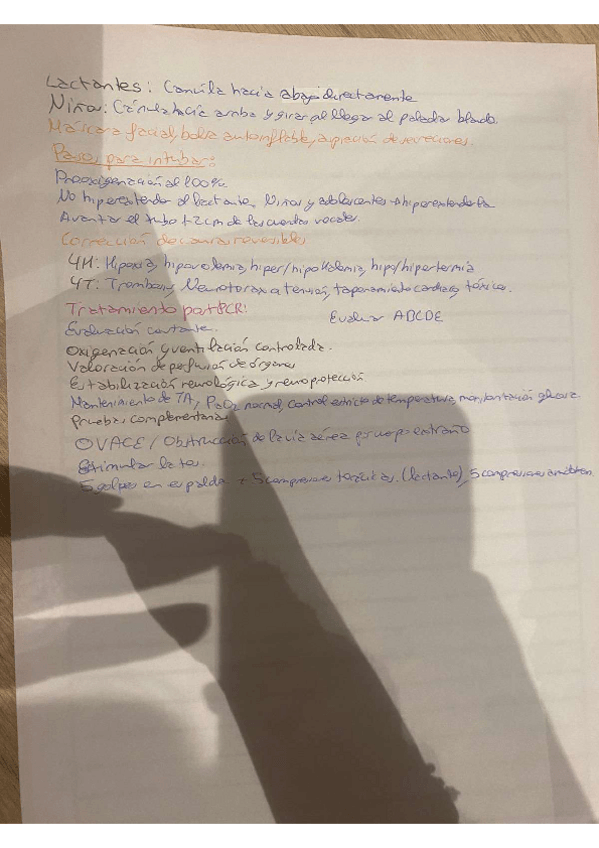 Lactantes: Cánula hacia abajo directamente
Niños: Cánula hacia arriba y girar al llegar al paladar blando.
Máscara facial, bolsa autoinflable, aspiración de secreciones.
Pasos para intubar:
Preoxigenación al 100%.
No hiperextender al lactante. Niños y adolescentes → hiperextender
Avanzar el tubo 1-2cm de las cuerdas vocales.
Corrección de causas reversibles
4H: Hipoxia, hipovolemia, hiper/hipokalemia, hipo/hipertermia
4T: Trombosis, Neumotorax a tensión, taponamiento cardiaco, tóxicos.
Tratamiento post PCR: Evaluar ABCDE
Evaluación constante.
Oxigenación y ventilación controlada.
Valoración de perfusión de órganos
Estabilización neurológica y neuroprotección
Mantenimiento de TA, PaO2 normal, control estricto de temperatura, monitorización glucosa
Pruebas complementarias
OVACE / Obstrucción de la vía aérea por cuerpo extraño
Estimular la tos.
5 golpes en espalda + 5 compresiones torácicas. (lactante), 5 compresiones